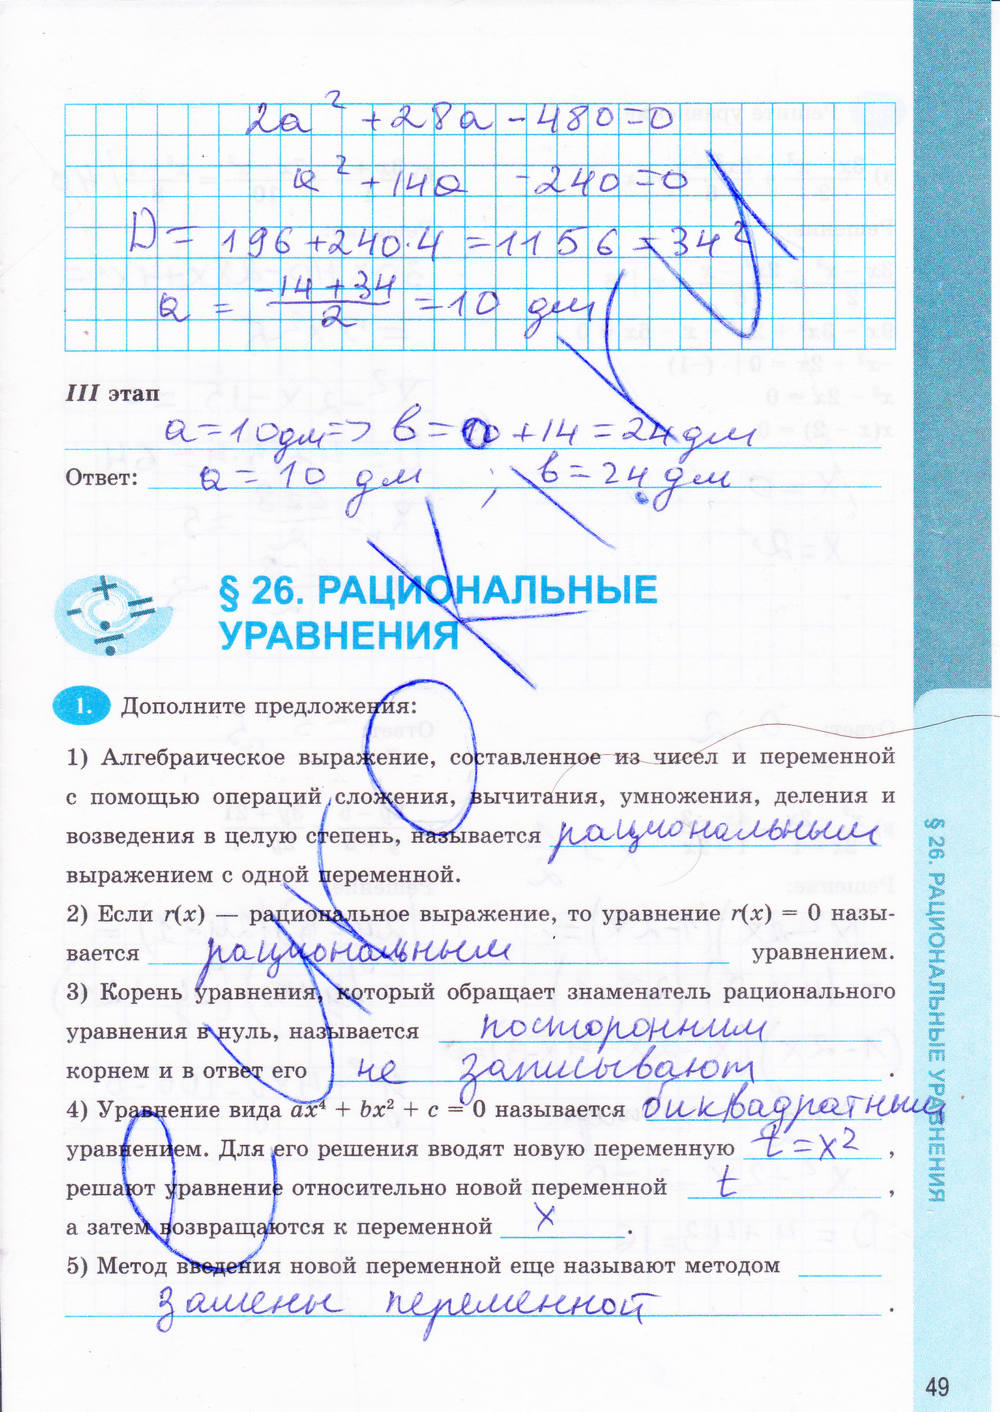 2a² + 28a - 480 = 0
a² + 14a - 240 = 0
D = 196 + 240·4 = 1156 = 34²
a = (-14 + 34)/2 = 10 дм
III этап
a = 10 дм => в = 10 + 14 = 24 дм
Ответ: a = 10 дм ; в = 24 дм
§ 26. РАЦИОНАЛЬНЫЕ
УРАВНЕНИЯ
1. Дополните предложения:
1) Алгебраическое выражение, составленное из чисел и переменной
с помощью операций сложения, вычитания, умножения, деления и
возведения в целую степень, называется рациональным
выражением с одной переменной.
2) Если r(x) — рациональное выражение, то уравнение r(x) = 0 назы-
вается рациональным уравнением.
3) Корень уравнения, который обращает знаменатель рационального
уравнения в нуль, называется посторонним
корнем и в ответ его не записывают .
4) Уравнение вида ax⁴ + bx² + c = 0 называется биквадратным
уравнением. Для его решения вводят новую переменную t = x² ,
решают уравнение относительно новой переменной t ,
а затем возвращаются к переменной x .
5) Метод введения новой переменной еще называют методом
замены переменной .
§ 26. РАЦИОНАЛЬНЫЕ УРАВНЕНИЯ
49